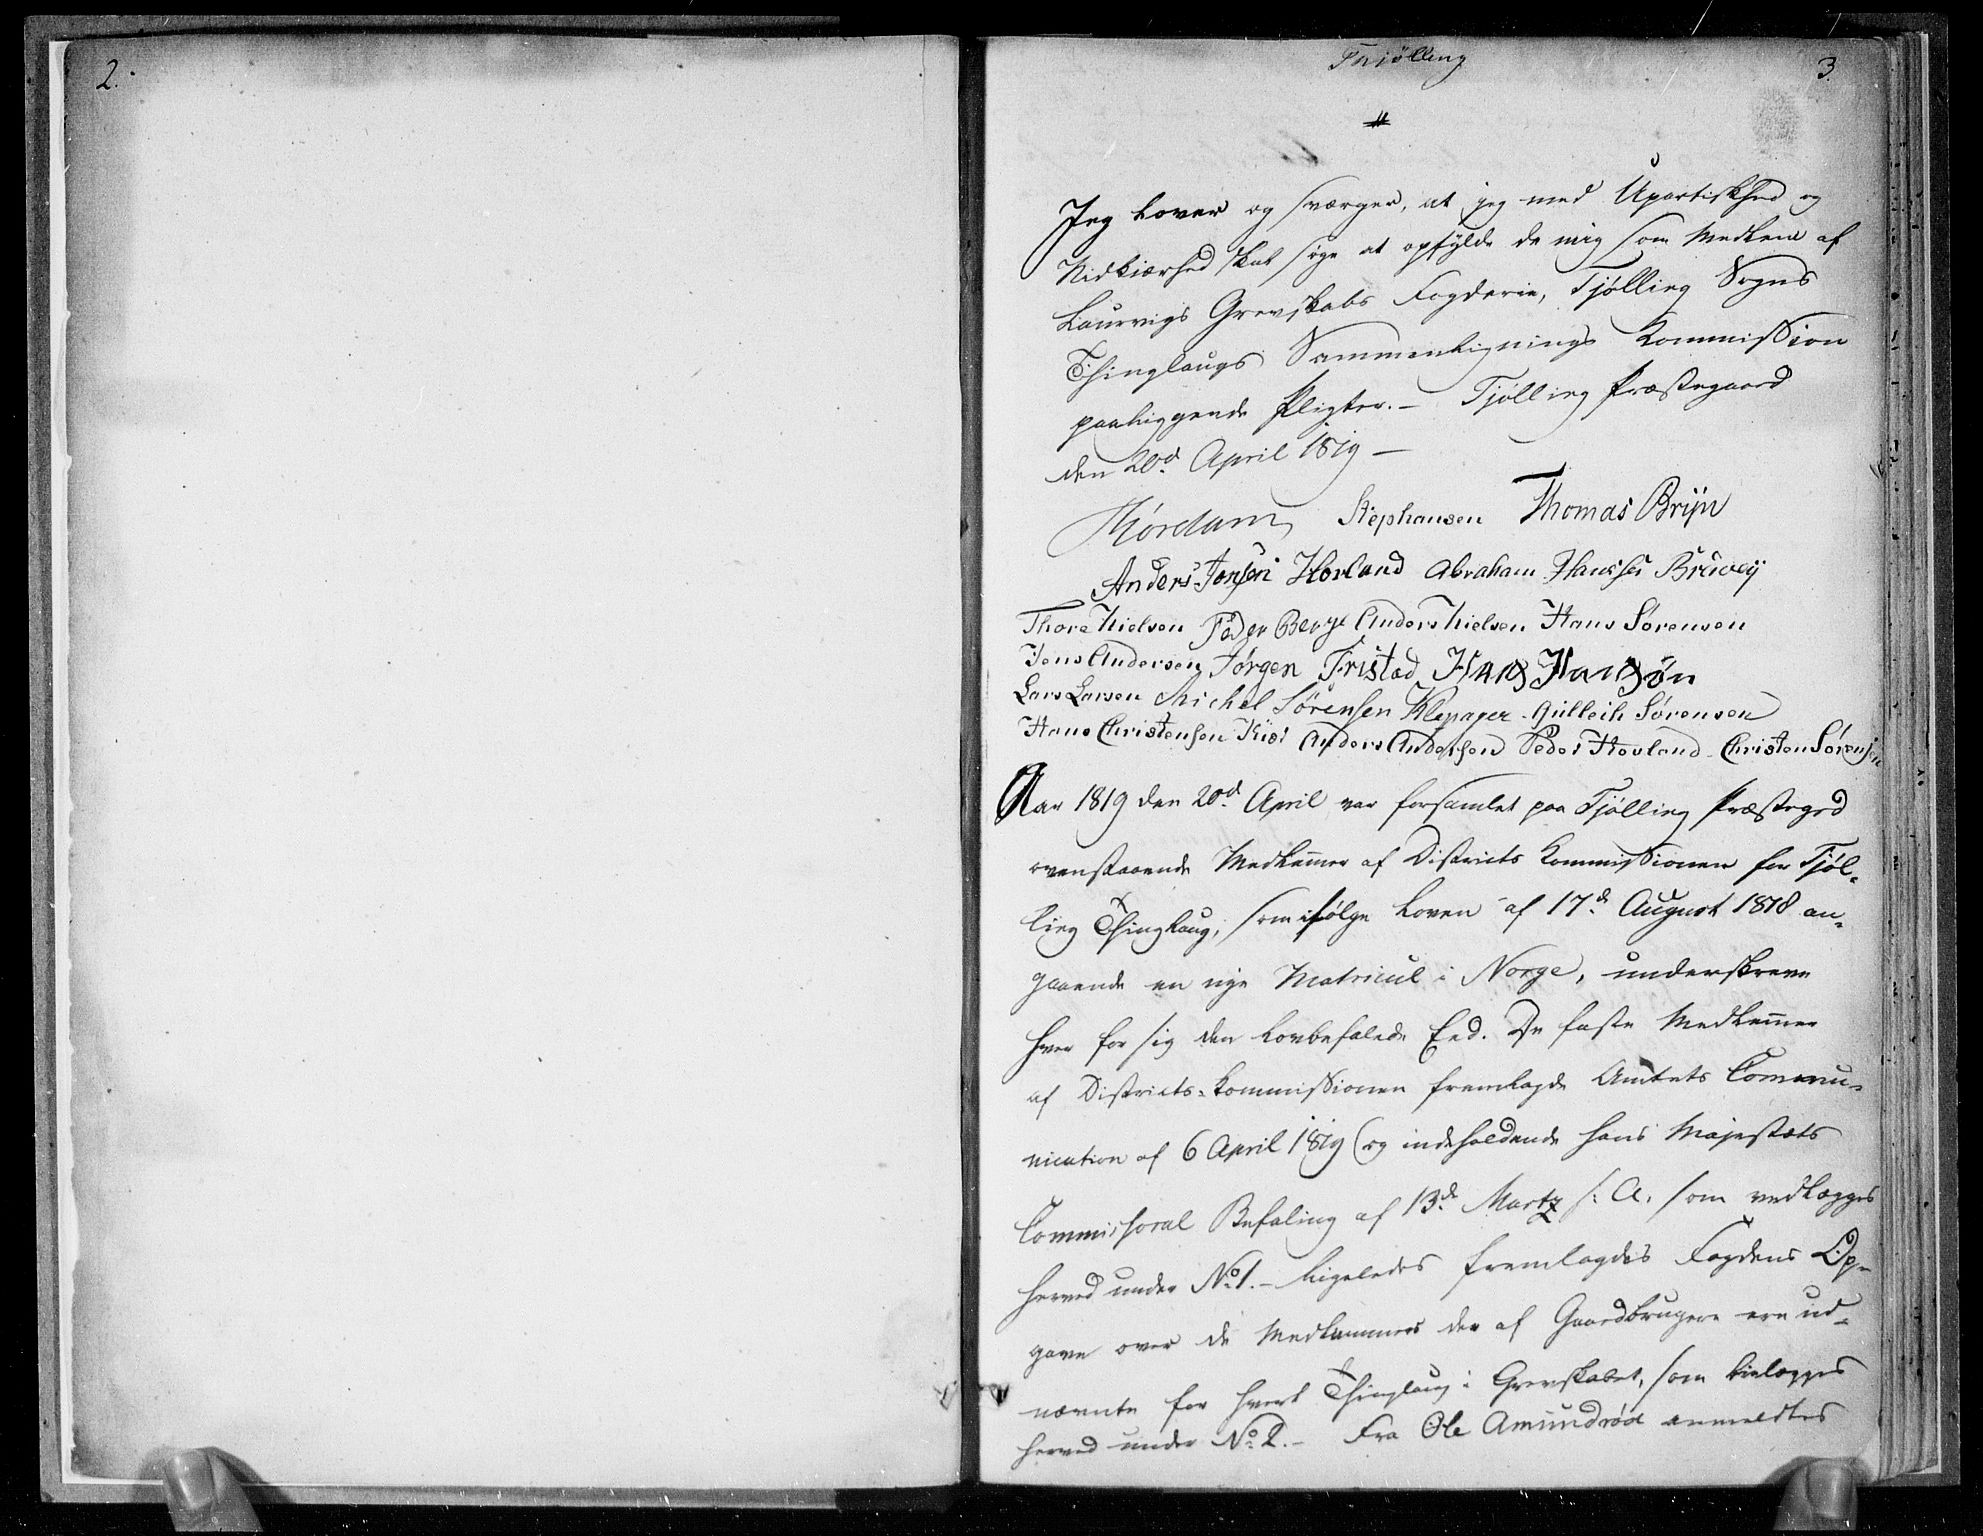 2.
Thiølling
3.
Jeg lover og sværger, at jeg med Upartiskhed og
Nidkiærhed skal søge at opfylde de mig som Medlem af
Laurvigs Grevskabs Fogderie, Tjølling Sogns
Thinglaugs Sammenlignings Kommission
paaliggende Pligter. – Tjølling Præstegaard
den 20d April 1819 –
Stephansen Thomas Bryn
Anders Jonsen Hovland Abraham Hansen
Thore Nielsen Peder Berge Anders Nielsen Hans Sørensen
Jens Andersen Jørgen Fristad Hans Hansøn
Lars Larsen Michel Sørensen Klepager Gulleih Sørensen
Hans Christensen Anders Andersen Peder Hovland Christen Sørensen
Aar 1819 den 20d April var forsamlet paa Tjølling Præstegrd
ovenstaaende Medlemmer af Districts Kommissionen for Tjøl-
ling Thinglaug, som ifølge Loven af 17d August 1818 an-
gaaende en nye Matricul i Norge, underskrev
hver for sig den lovbefalede Eed. De faste Medlemmer
af Districts-Kommissionen fremlagde Amtets Commu-
nication af 6 April 1819 og indeholdende hans Majestæts
Commissoral Befaling af 13de Martz s: A. som vedlægges
herved under No 1. – Ligeledes fremlagdes Fogdens Op-
gave over de Medlemmer der af Gaardbrugere ere ud-
nævnte for hvert Thinglaug i Grevskabet, som bielægges
herved under No 2. – Fra Ole Amundrød anmeldtes